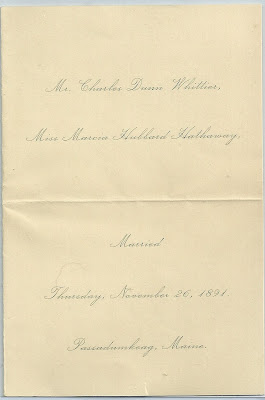 Mr. Charles Dunn Whittier,
Miss Marcia Hubbard Hathaway,
Married
Thursday, November 26, 1891.
Passadumkeag, Maine.